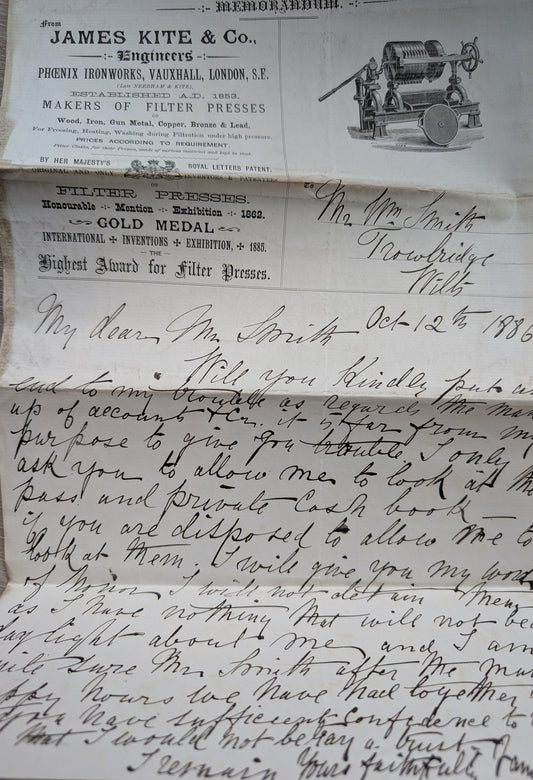 -:- MEMORANDUM. -:-
From
JAMES KITE & Co.,
Engineers
PHŒNIX IRONWORKS, VAUXHALL, LONDON, S.E.
(Late NEEDHAM & KITE),
ESTABLISHED A.D. 1853.
MAKERS OF FILTER PRESSES
OF
Wood, Iron, Gun Metal, Copper, Bronze & Lead,
For Freezing, Heating, Washing during Filtration under high pressure.
PRICES ACCORDING TO REQUIREMENT.
Filter Cloths, for these Presses, made of various material and kept in stock.
BY HER MAJESTY'S ROYAL LETTERS PATENT.
ORIGINAL AND ONLY INVENTORS & PATENTEES
OF
FILTER PRESSES.
Honourable -:- Mention -:- Exhibition -:- 1862.
GOLD MEDAL
INTERNATIONAL ✢ INVENTIONS ✢ EXHIBITION, ✢ 1885.
— THE —
Highest Award for Filter Presses.
To
Mr Wm Smith
Trowbridge
Wilts
Oct 12th 1886
My dear Mr Smith
Will you Kindly put an
end to my trouble as regards the
up of account &c. it is far from my
purpose to give you trouble. I only
ask you to allow me to look at the
pass and private Cash book
if you are disposed to allow me to
look at them. I will give you my word
of honor I will not detain them
as I have nothing that will not
daylight about me and I am
quite sure Mr Smith after the
happy hours we have had together
you have sufficient confidence to
that I would not betray a trust
I remain Yours faithfully